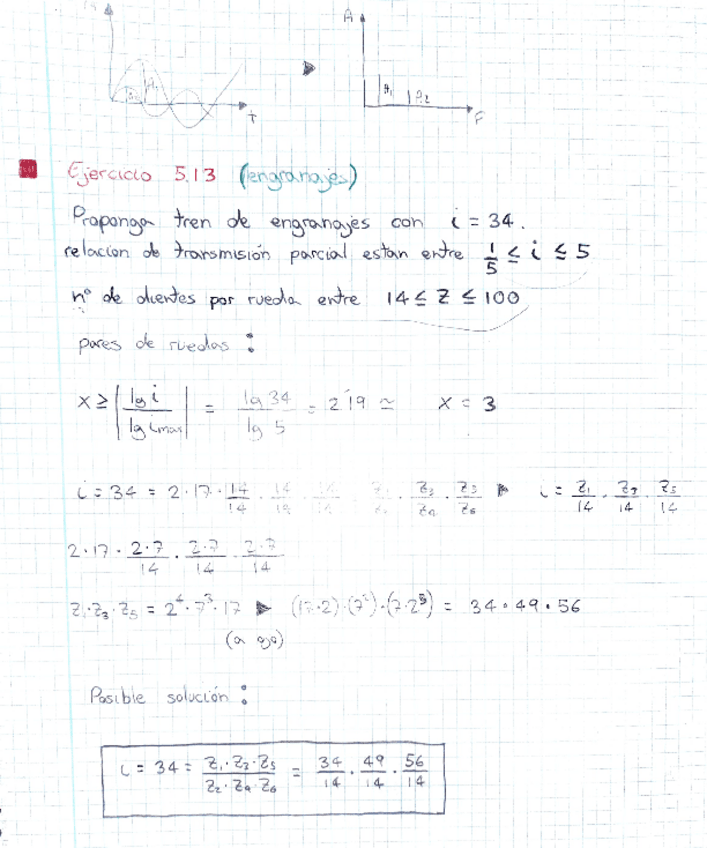 A
A₁
A₂
T
F
Ejercicio 5.13 (engranajes)
Proponga tren de engranajes con i = 34.
relacion de transmisión parcial estan entre 1/5 ≤ i ≤ 5
nº de dientes por rueda entre 14 ≤ Z ≤ 100
pares de ruedas :
X ≥ |lg i / lg imax| = lg 34 / lg 5 = 2'19 ≃ X = 3
i = 34 = 2·17·14/14 · 14/14 · 14/14 Z₁/Z₂ · Z₃/Z₄ · Z₅/Z₆ ▶ i = Z₁/14 · Z₃/14 · Z₅/14
2·17 · 2·7/14 · 2·7/14 · 2·7/14
Z₁·Z₃·Z₅ = 2⁴·7³·17 ▶ (17·2)·(7²)·(7·2³) = 34·49·56
(a ojo)
Posible solución :
i = 34 = Z₁·Z₃·Z₅ / Z₂·Z₄·Z₆ = 34/14 · 49/14 · 56/14